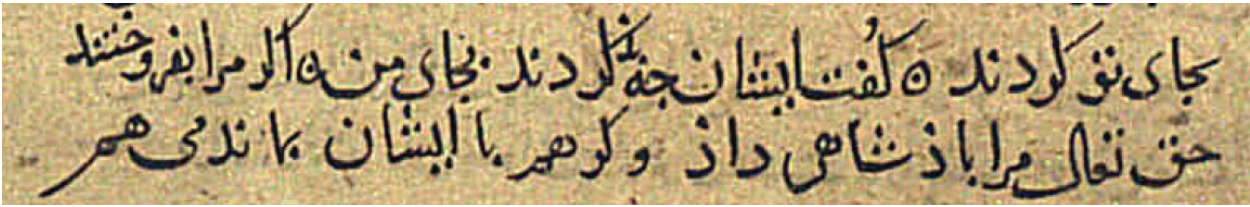 بجای تو کردند ه کفت ایشان جه کردند بجای من ه اکر مرا بفروختند
حق تعالی مرا باذشاهی داذ و کر هم با ایشان بماندمی هم